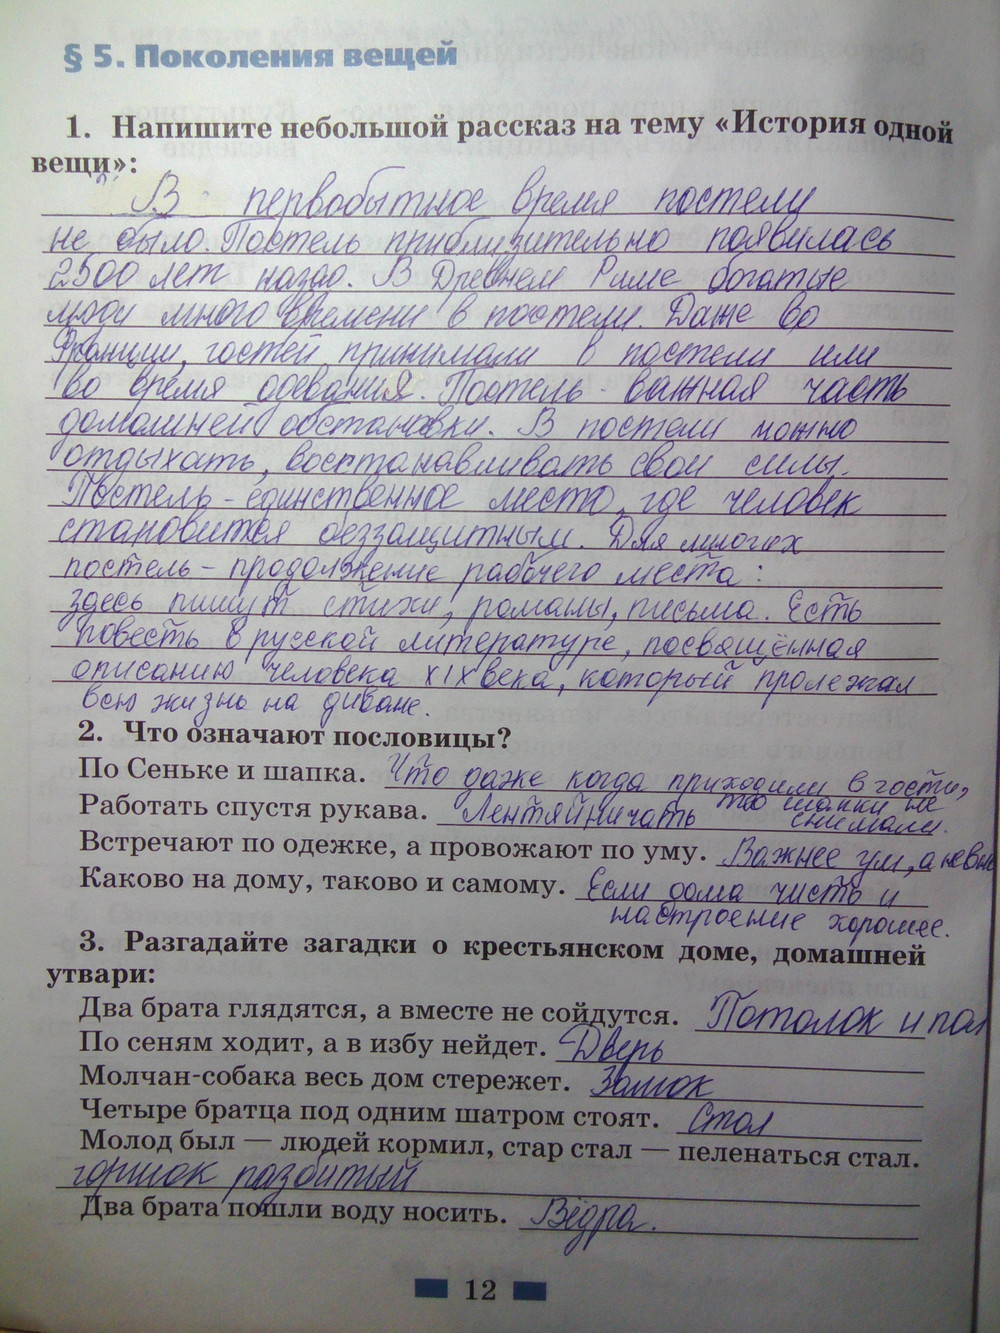 § 5. Поколения вещей
1. Напишите небольшой рассказ на тему «История одной
вещи»:
В первобытное время постели
не было. Постель приблизительно появилась
2500 лет назад. В Древнем Риме богатые
люди много времени в постели. Даже во
Франции, гостей принимали в постели или
во время одевания. Постель - важная часть
домашней обстановки. В постели можно
отдыхать, восстанавливать свои силы.
Постель - единственное место, где человек
становится беззащитным. Для многих
постель - продолжение рабочего места:
здесь пишут стихи, романы, письма. Есть
повесть в русской литературе, посвящённая
описанию человека XIX века, который пролежал
всю жизнь на диване.
2. Что означают пословицы?
По Сеньке и шапка. Что даже когда приходили в гости,
то шапки не
Работать спустя рукава. Лентяйничать снимали.
Встречают по одежке, а провожают по уму. Важнее ум, а не
Каково на дому, таково и самому. Если дома чисто и
настроение хорошее.
3. Разгадайте загадки о крестьянском доме, домашней
утвари:
Два брата глядятся, а вместе не сойдутся. Потолок и пол
По сеням ходит, а в избу нейдет. Дверь
Молчан-собака весь дом стережет. Замок
Четыре братца под одним шатром стоят. Стол
Молод был — людей кормил, стар стал — пеленаться стал.
горшок разбитый
Два брата пошли воду носить. Вёдра.
12